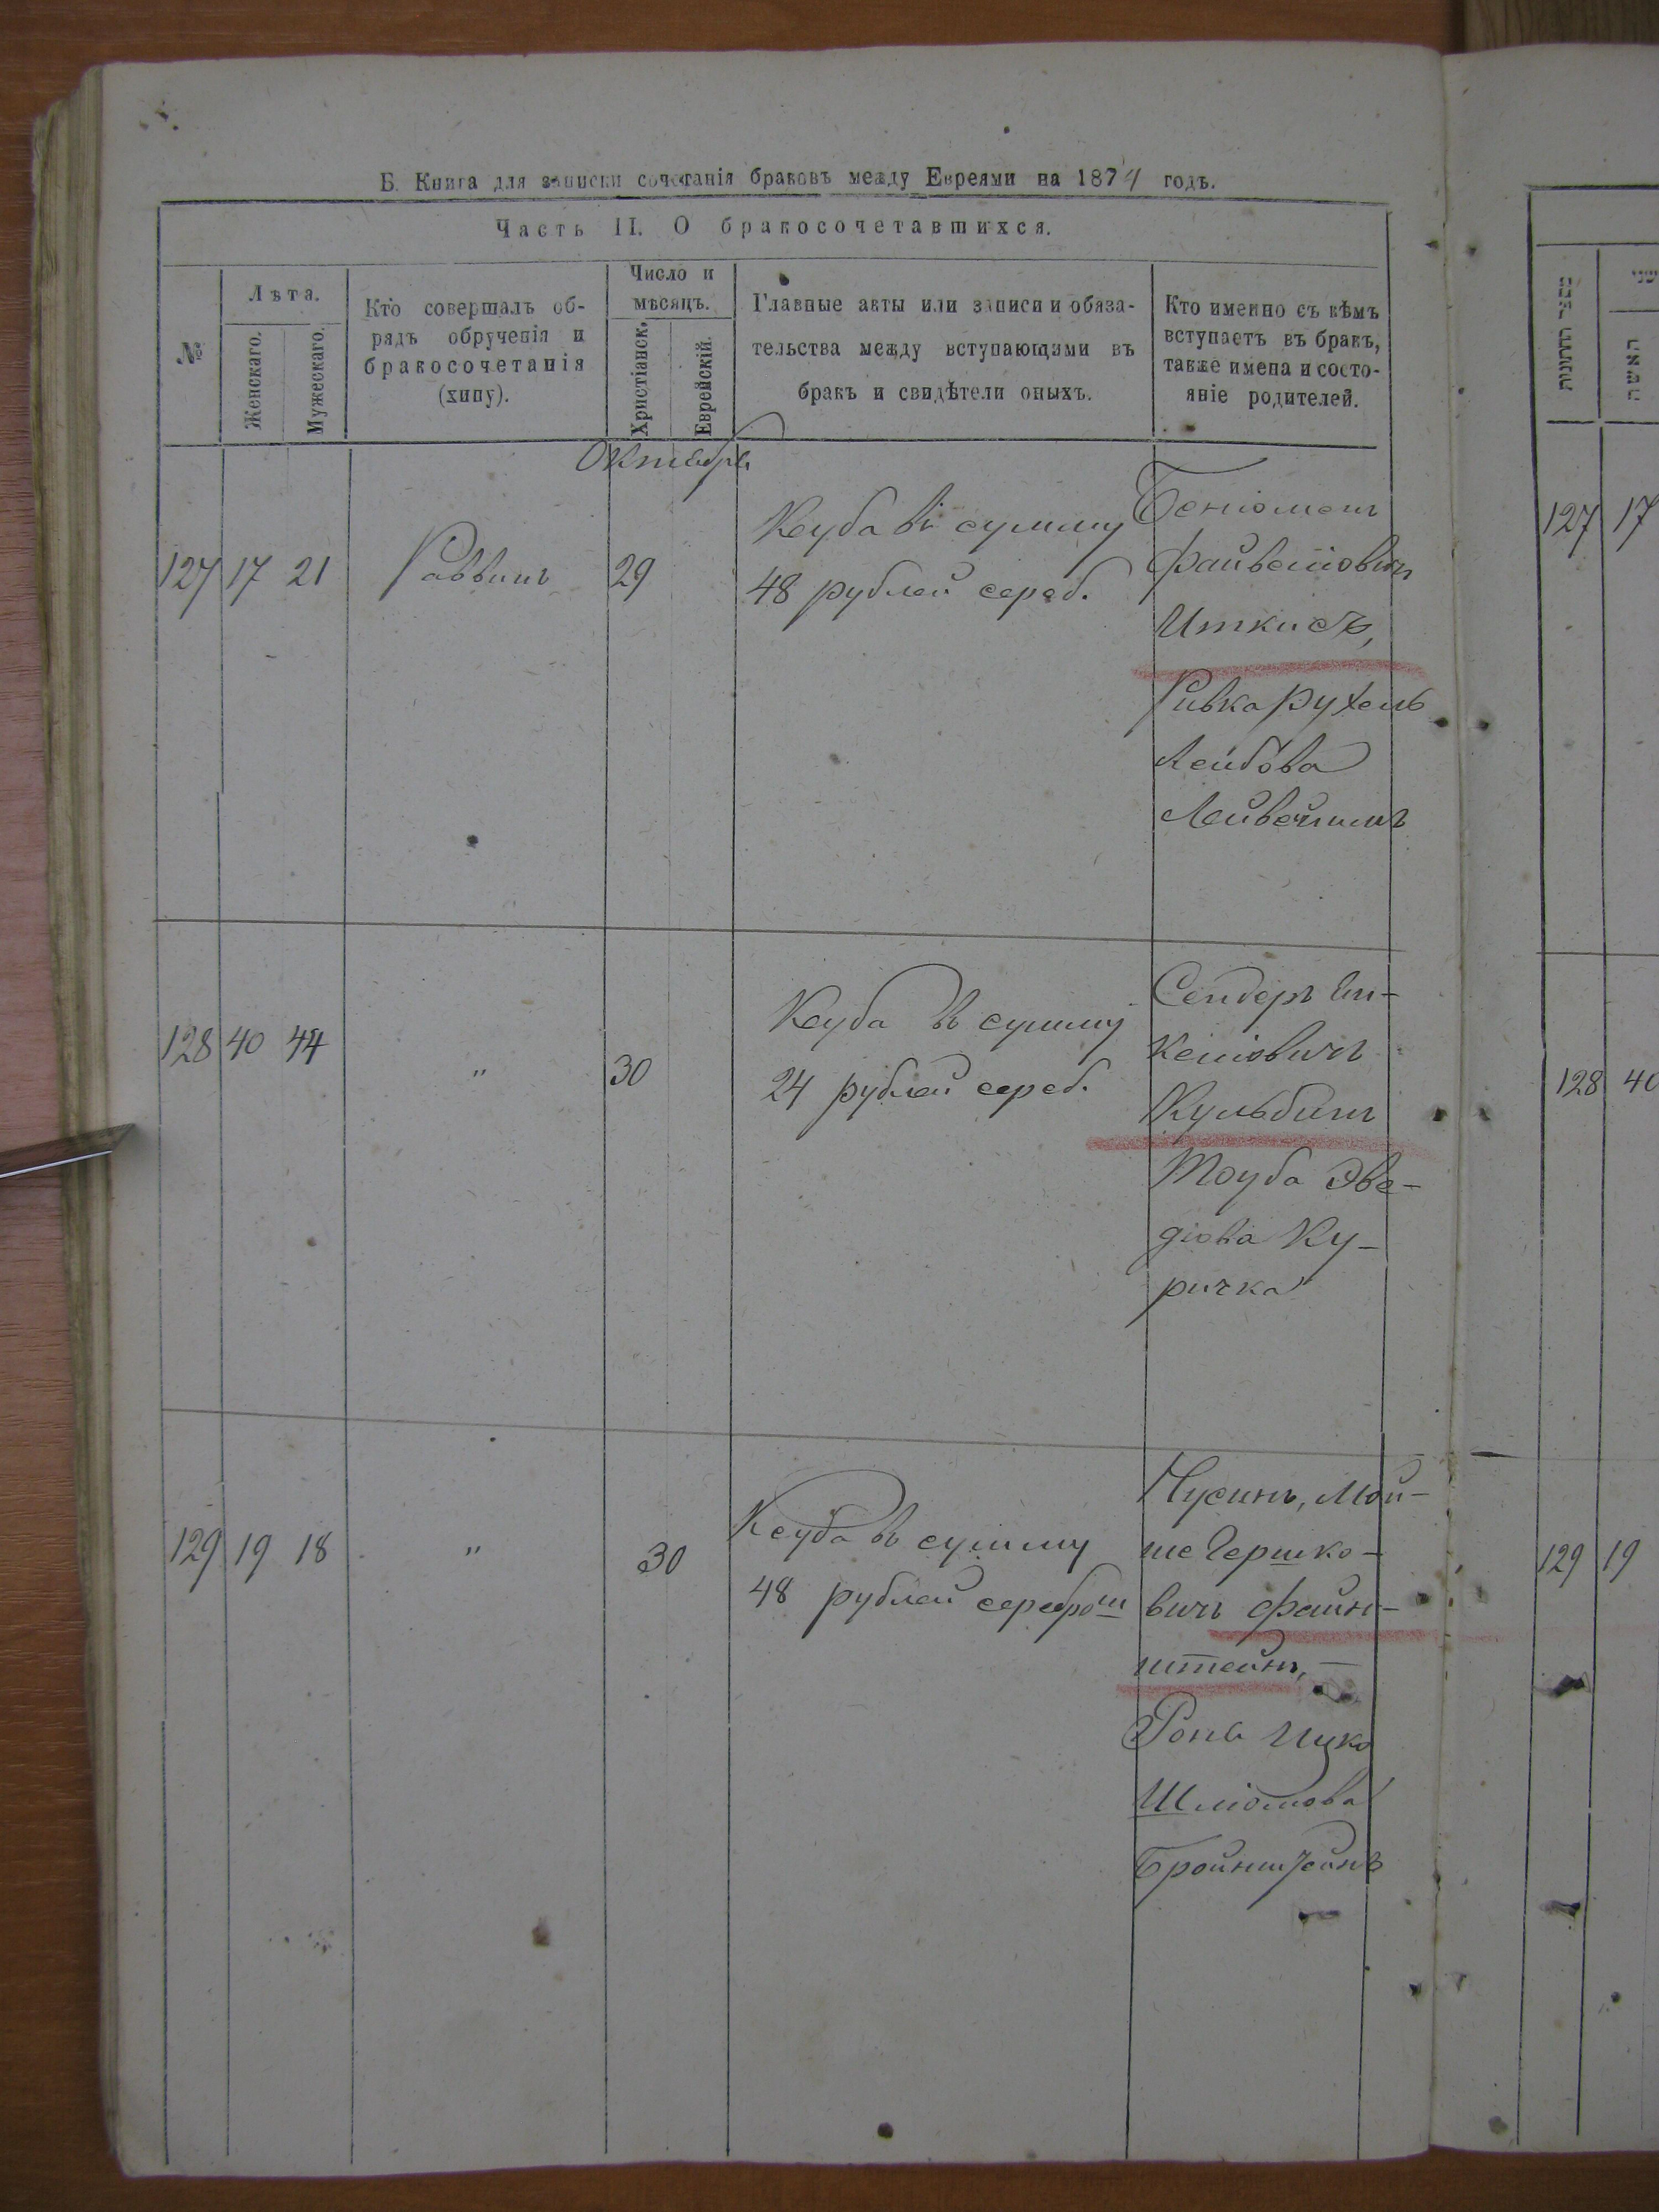 Б. Книга для записки сочетанія браковъ между Евреями на 1874 годъ.
Часть II. О бракосочетавшихся.
№
Лѣта.
Женскаго.
Мужескаго.
Кто совершалъ об-
рядъ обрученія и
бракосочетанія
(хипу).
Число и
мѣсяцъ.
Христіанск.
Еврейскій.
Главные акты или записи и обяза-
тельства между вступающими въ
бракъ и свидѣтели оныхъ.
Кто именно съ кѣмъ
вступаетъ въ бракъ,
также имена и состо-
яніе родителей.
Октября
127 17 21 Раввинъ 29
Кеуба въ сумму
48 рублей сереб.
Беніоменъ
Файвешовичъ
Иткисъ,
Ривка Рухель
Лейбова
128 40 44 " 30
Кеуба въ сумму
24 рублей сереб.
Сендеръ
Кульбинъ
Тоуба Ове-
діова Ку-
ричка
129 19 18 " 30
Кеуба въ сумму
48 рублей серебромъ
Нусинъ, Мой-
ше Гершко-
вичъ Файн-
штейнъ,
Ицко
Шліомова
Бройнштейнъ
מספר החתונות
האשה
127 17
128 40
129 19